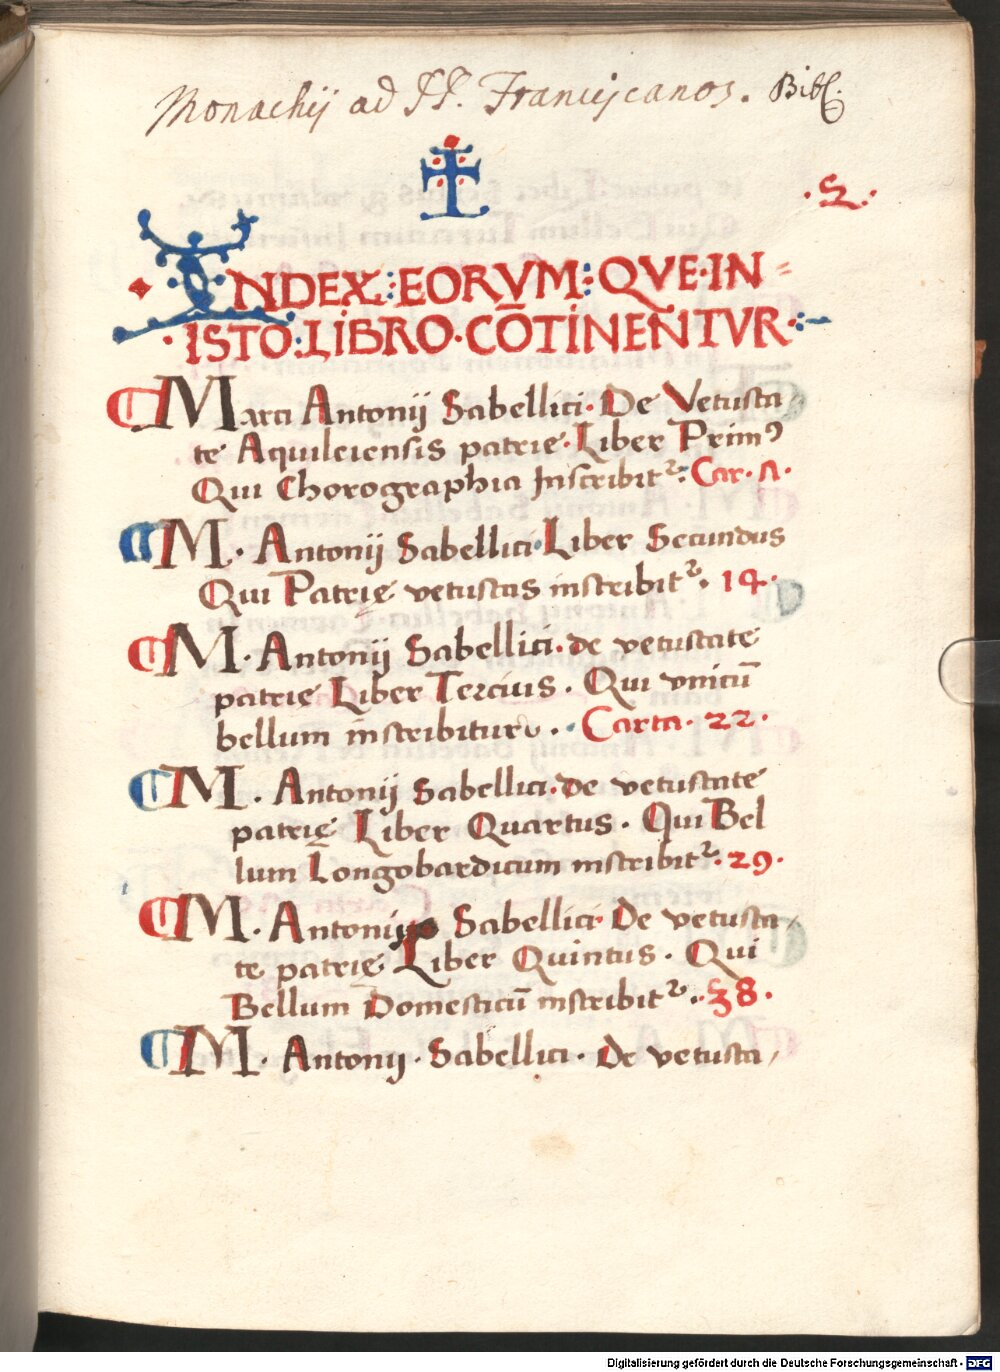 Monachij ad PP. Franciscanos. Bibl.
INDEX: EORVM: QVE·IN
·ISTO:LIBRO·CŌTINENTVR·:~
¶Marci Antonij Sabellici·De Vetusta
te Aquileiensis patrie·Liber Primꝰ
Qui Chorographia Inscribit᷑: Car·A·
¶M· Antonij Sabellici·Liber Secundus
Qui Patrię vetustas inscribit᷑· 14·
¶M·Antonij Sabellici·de vetustate
patrię Liber Tercius· Qui vnicū
bellum inscribitur·· Carta·22·
¶M· Antonij Sabellici·de vetustate
patrię Liber Quartus· Qui Bel
lum Longobardicum inscribit᷑·29·
¶M·Antonij Sabellici· De vetusta/
te patrię Liber Quintus· Qui
Bellum Domesticū inscribit᷑··38·
¶M· Antonij·Sabellici· De vetusta/
Digitalisierung gefördert durch die Deutsche Forschungsgemeinschaft · DFG